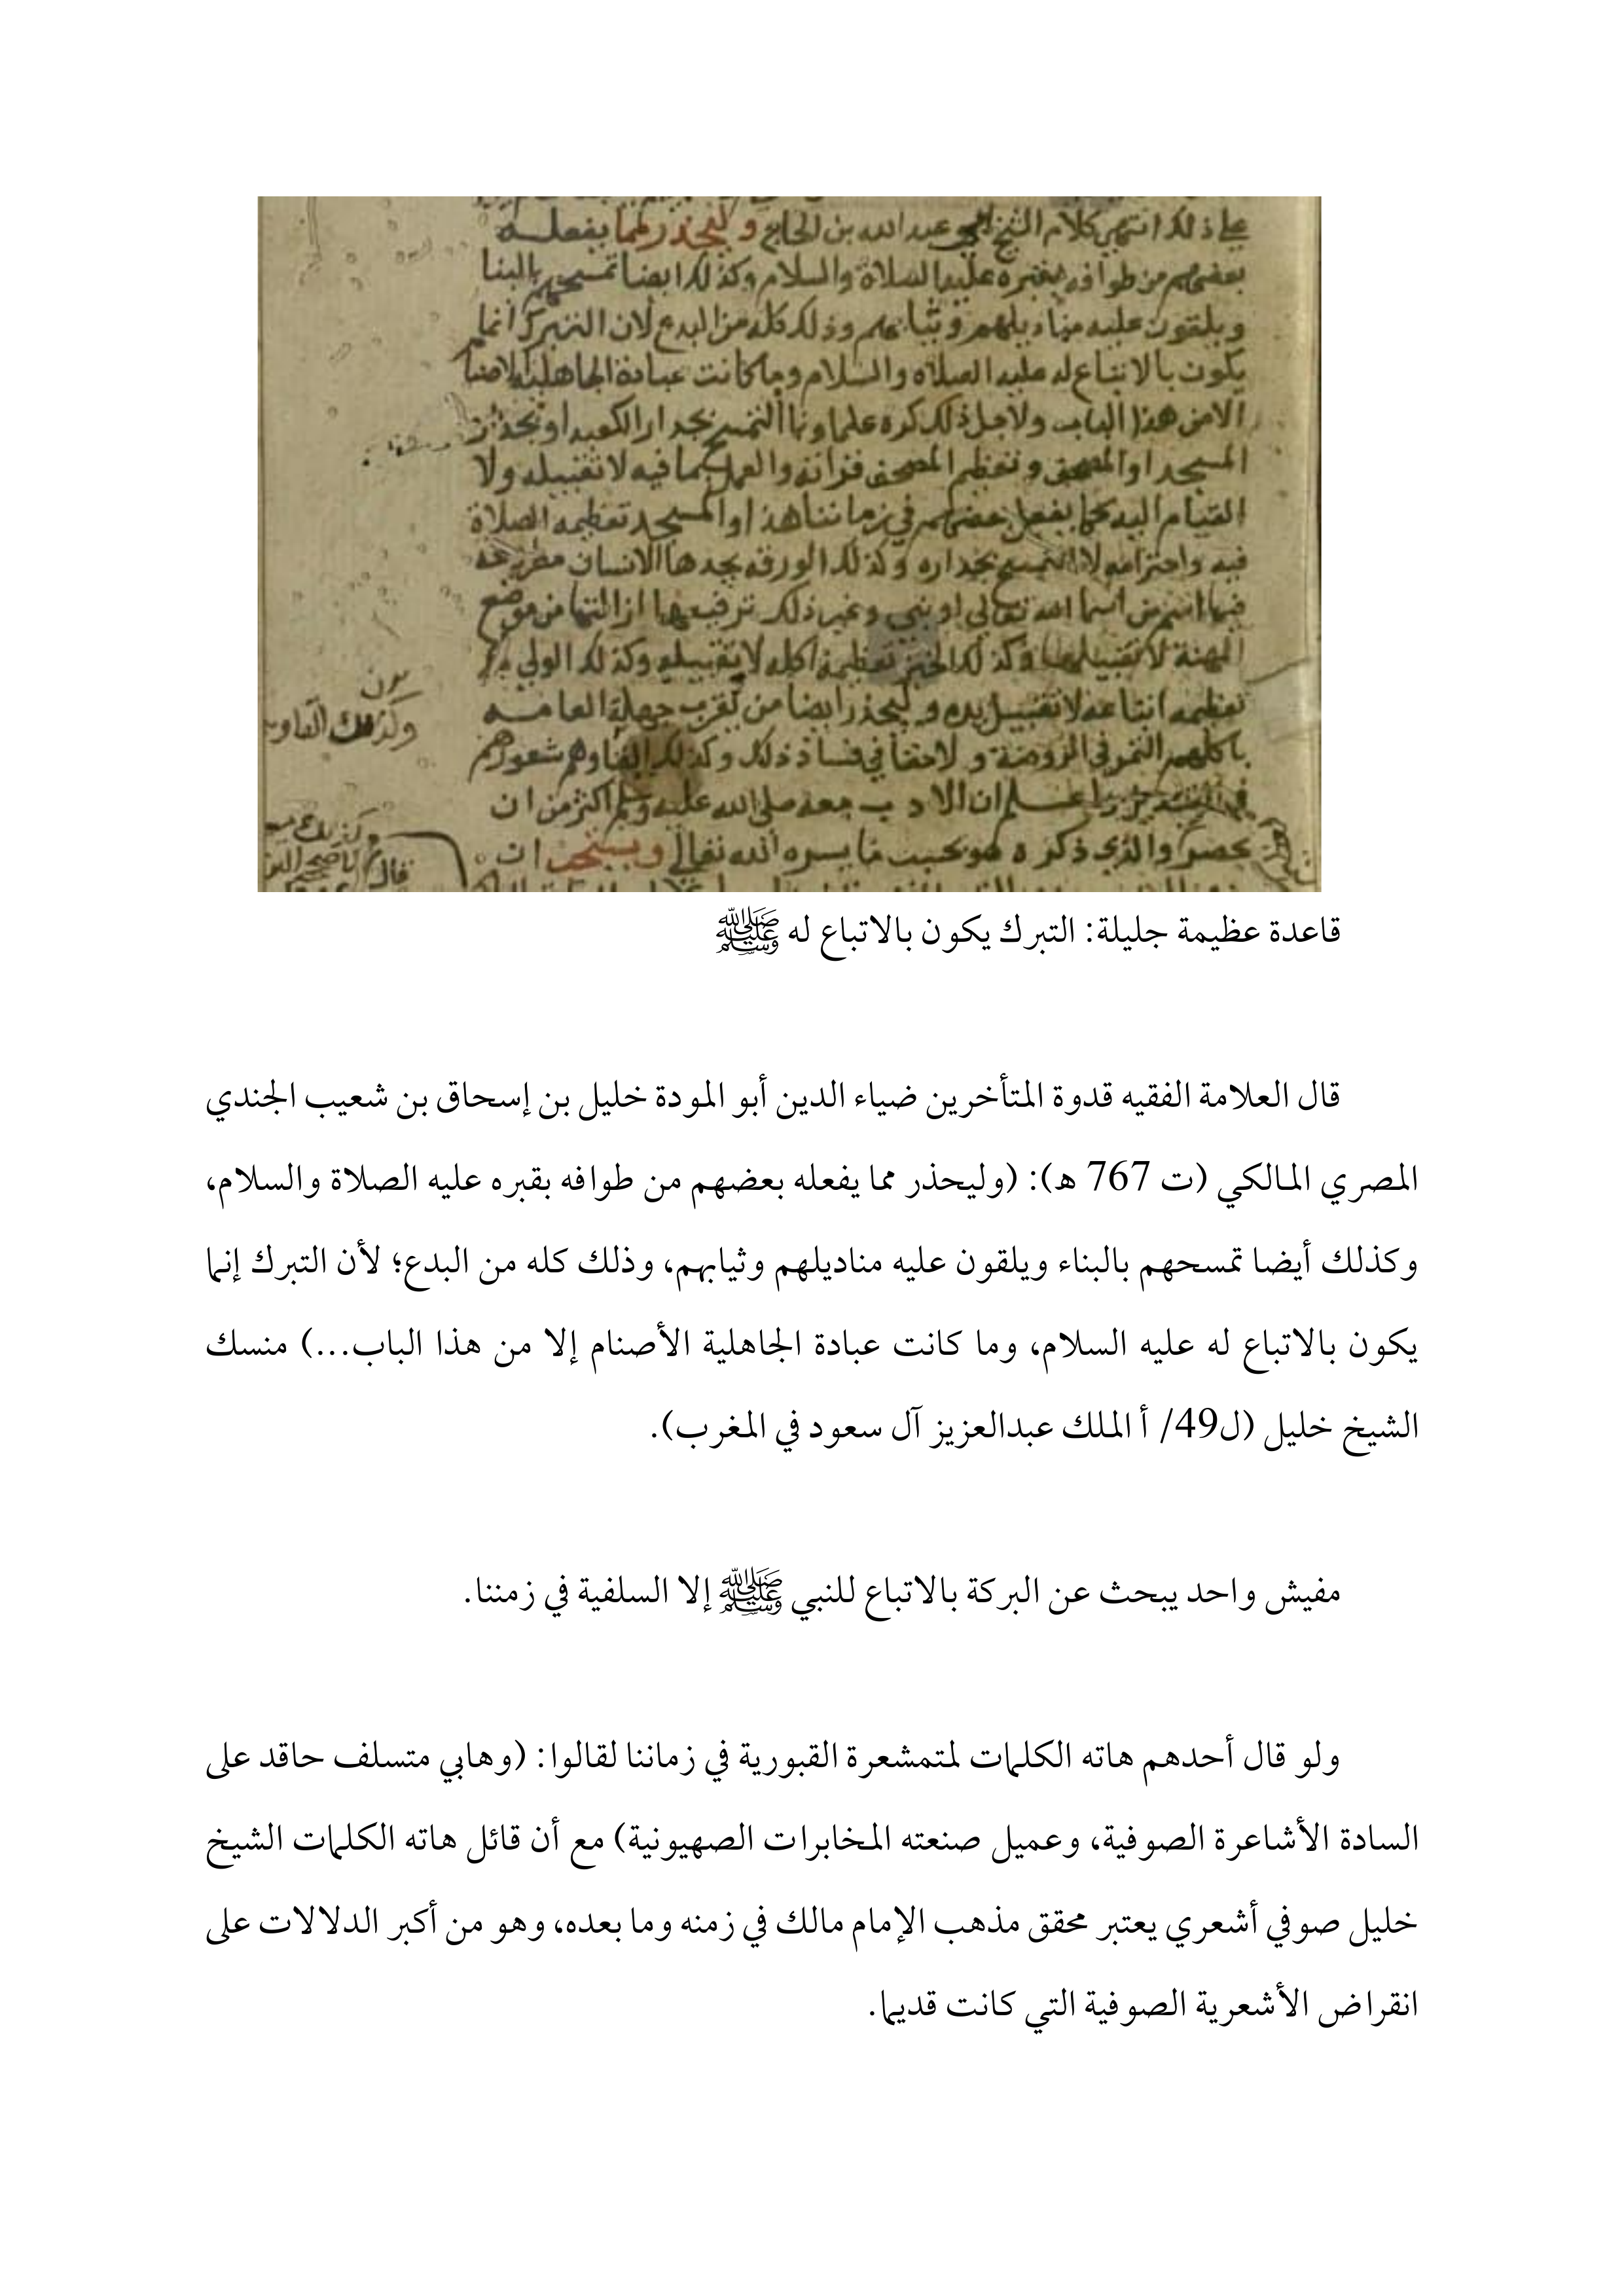 على ذلك انتهى كلام الشيخ ابي عبد الله بن الحاج وليحذر مما يفعله
بعضهم من طوافه بقبره عليه الصلاة والسلام وكذلك ايضا تمسحهم بالبنا
ويلقون عليه مناديلهم وثيابهم وذلك كله من البدع لان التبرك انما
يكون بالاتباع له عليه الصلاه والسلام وما كانت عبادة الجاهلية الاصنام
الا من هذا الباب ولاجل ذلك كره علماونا التمسح بجدار الكعبه او بجدران
المسجد او المصحف وتعظيم المصحف قراته والعمل بما فيه لا تقبيله ولا
القيام اليه كما يفعل بعضهم في زماننا هذا والمسجد تعظيمه الصلاة
فيه واحترامه لا التمسح بجداره وكذلك الورقه يجدها الانسان مطروحة
فيها اسم من اسما الله تعالى او نبي وغير ذلك ترفيعها ازالتها من موضع
المهنة لا تقبيلها وكذلك الخبز تعظيمه اكله لا تقبيله وكذلك الولي
تعظيمه اتباعه لا تقبيل يده وليحذر ايضا من تقرب جهلة العامه
باكلهم التمر في الروضة ولا خفا في فساد ذلك وكذلك القاوهم شعورهم
في واعلم ان الادب معه صلى الله عليه وسلم اكثر من ان
يحصر والذي ذكره هو بحسب ما يسره الله تعالى ويستحب ان
قاعدة عظيمة جليلة: التبرك يكون بالاتباع له ﷺ
قال العلامة الفقيه قدوة المتأخرين ضياء الدين أبو المودة خليل بن إسحاق بن شعيب الجندي
المصري المالكي (ت 767 ه): (وليحذر مما يفعله بعضهم من طوافه بقبره عليه الصلاة والسلام،
وكذلك أيضا تمسحهم بالبناء ويلقون عليه مناديلهم وثيابهم، وذلك كله من البدع؛ لأن التبرك إنما
يكون بالاتباع له عليه السلام، وما كانت عبادة الجاهلية الأصنام إلا من هذا الباب...) منسك
الشيخ خليل (ل49/ أ الملك عبدالعزيز آل سعود في المغرب).
مفيش واحد يبحث عن البركة بالاتباع للنبي ﷺ إلا السلفية في زمننا.
ولو قال أحدهم هاته الكلمات لمتمشعرة القبورية في زماننا لقالوا: (وهابي متسلف حاقد على
السادة الأشاعرة الصوفية، وعميل صنعته المخابرات الصهيونية) مع أن قائل هاته الكلمات الشيخ
خليل صوفي أشعري يعتبر محقق مذهب الإمام مالك في زمنه وما بعده، وهو من أكبر الدلالات على
انقراض الأشعرية الصوفية التي كانت قديما.